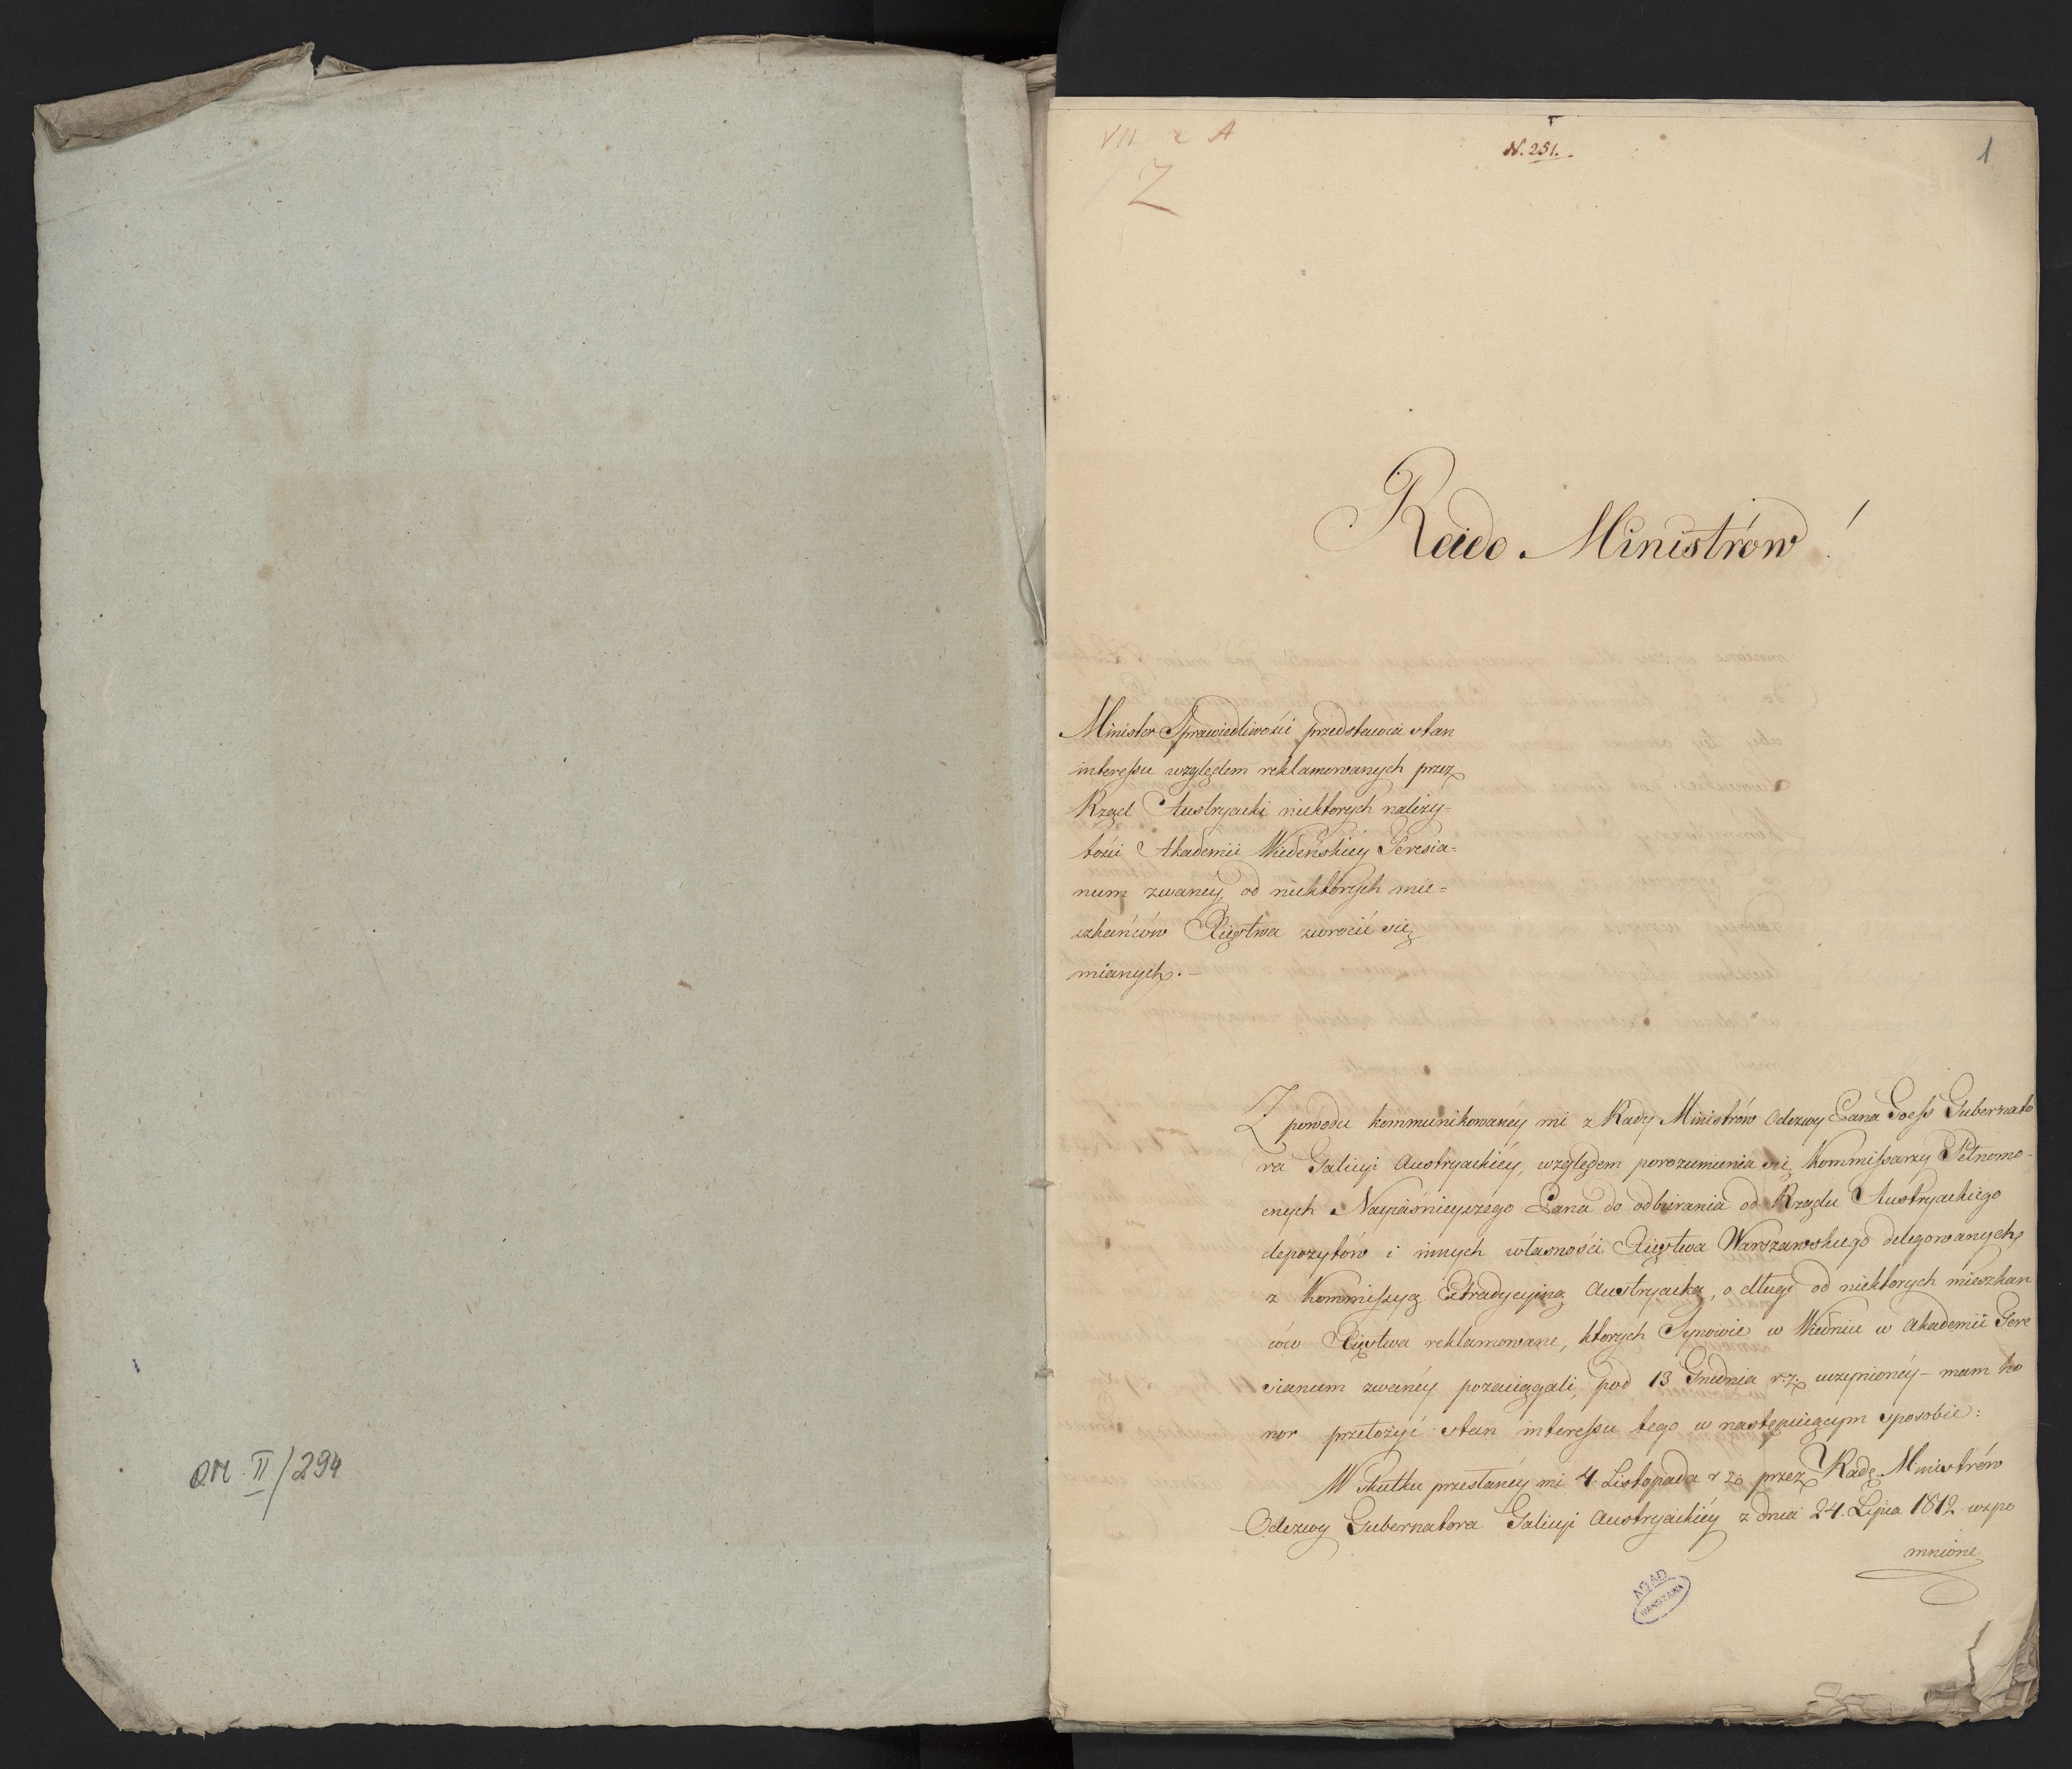 RM. II/294
VII 2 A
Z
N. 251.
1
Rado Ministrów!
Minister Sprawiedliwości przedstawia stan
interessu względem reklamowanych przez
Rząd Austryacki niektorych należy-
tości Akademii Wiedeńskiéy Teresia-
num zwaney, od niektórych mie-
szkańców Xięstwa zwrócić się
mianych. -
Z powodu kommunikowanéy mi z Rady Ministrów Odezwy Pana Goess Gubernato
ra Galicyi Austryackiéy, względem porozumienia się Kommissarzy Pełnomo-
cnych Nayiaśnieyszego Pana do odbierania od Rządu Austryackiego
depozytów i innych własności Xięstwa Warszawskiego delegowanych,
z Kommissyą Extradycyiną Austryacką, o długi od niektorych mieszkan
ców Xięstwa reklamowane, ktorych Synowie w Wiedniu w Akademii Tere
sianum zwanéy pozaciągali, pod 13 Grudnia r. z. uczynionéy - mam ho
nor przełożyć stan interessu tego w następuiącym sposobie:
W skutku przesłanéy mi 4. Listopada r. z. przez Radę Ministrów
Odezwy Gubernatora Galicyi Austryackiéy z dnia 24. Lipca 1812 wspo
mnione
AGAD
WARSZAWA